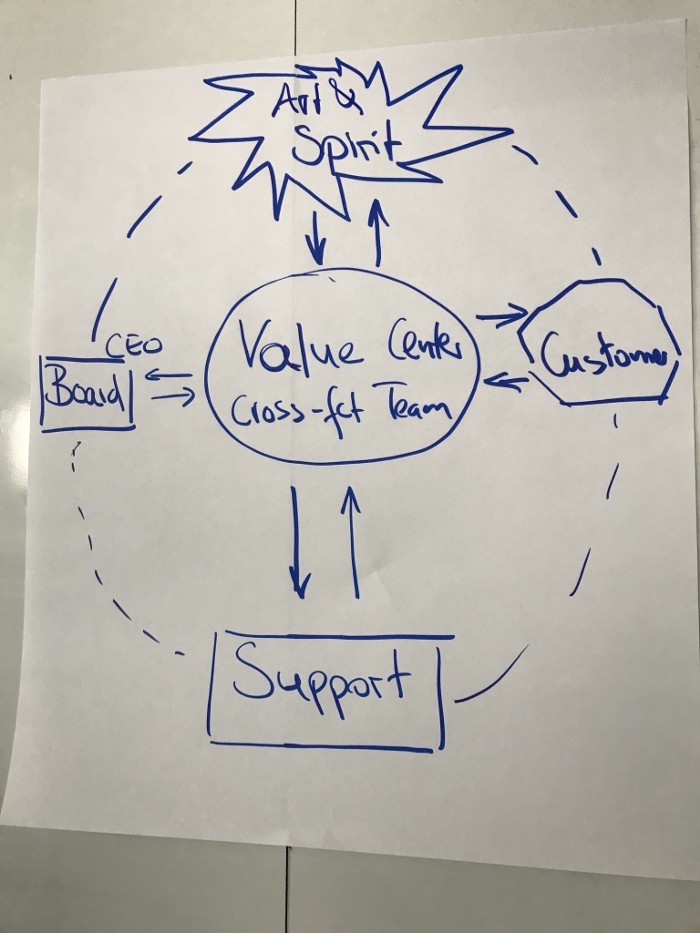 Art &
Spirit
CEO
Board
Value Center
Cross-fct Team
Customer
Support